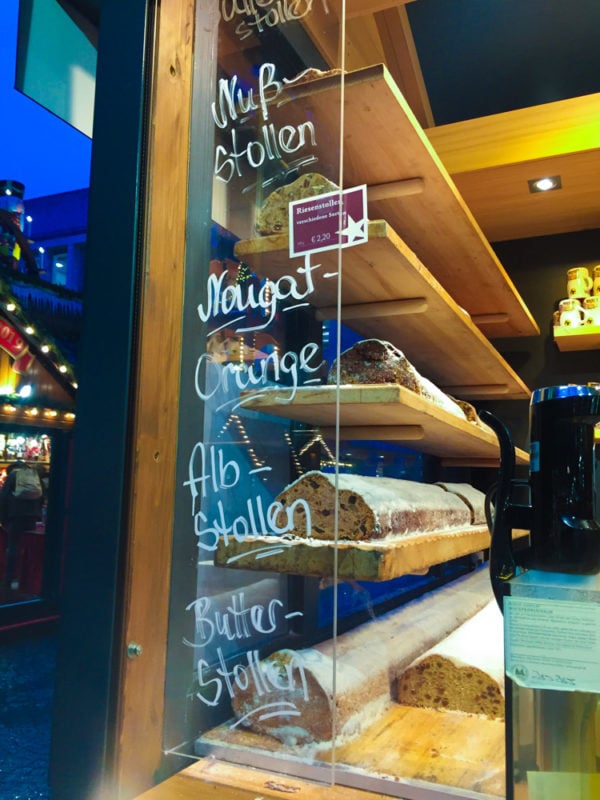 Butter
stollen
Nuß-
stollen
Riesenstollen
verschiedene Sorten
€ 2,20
Nougat-
Orange
Alb-
stollen
Butter-
Stollen